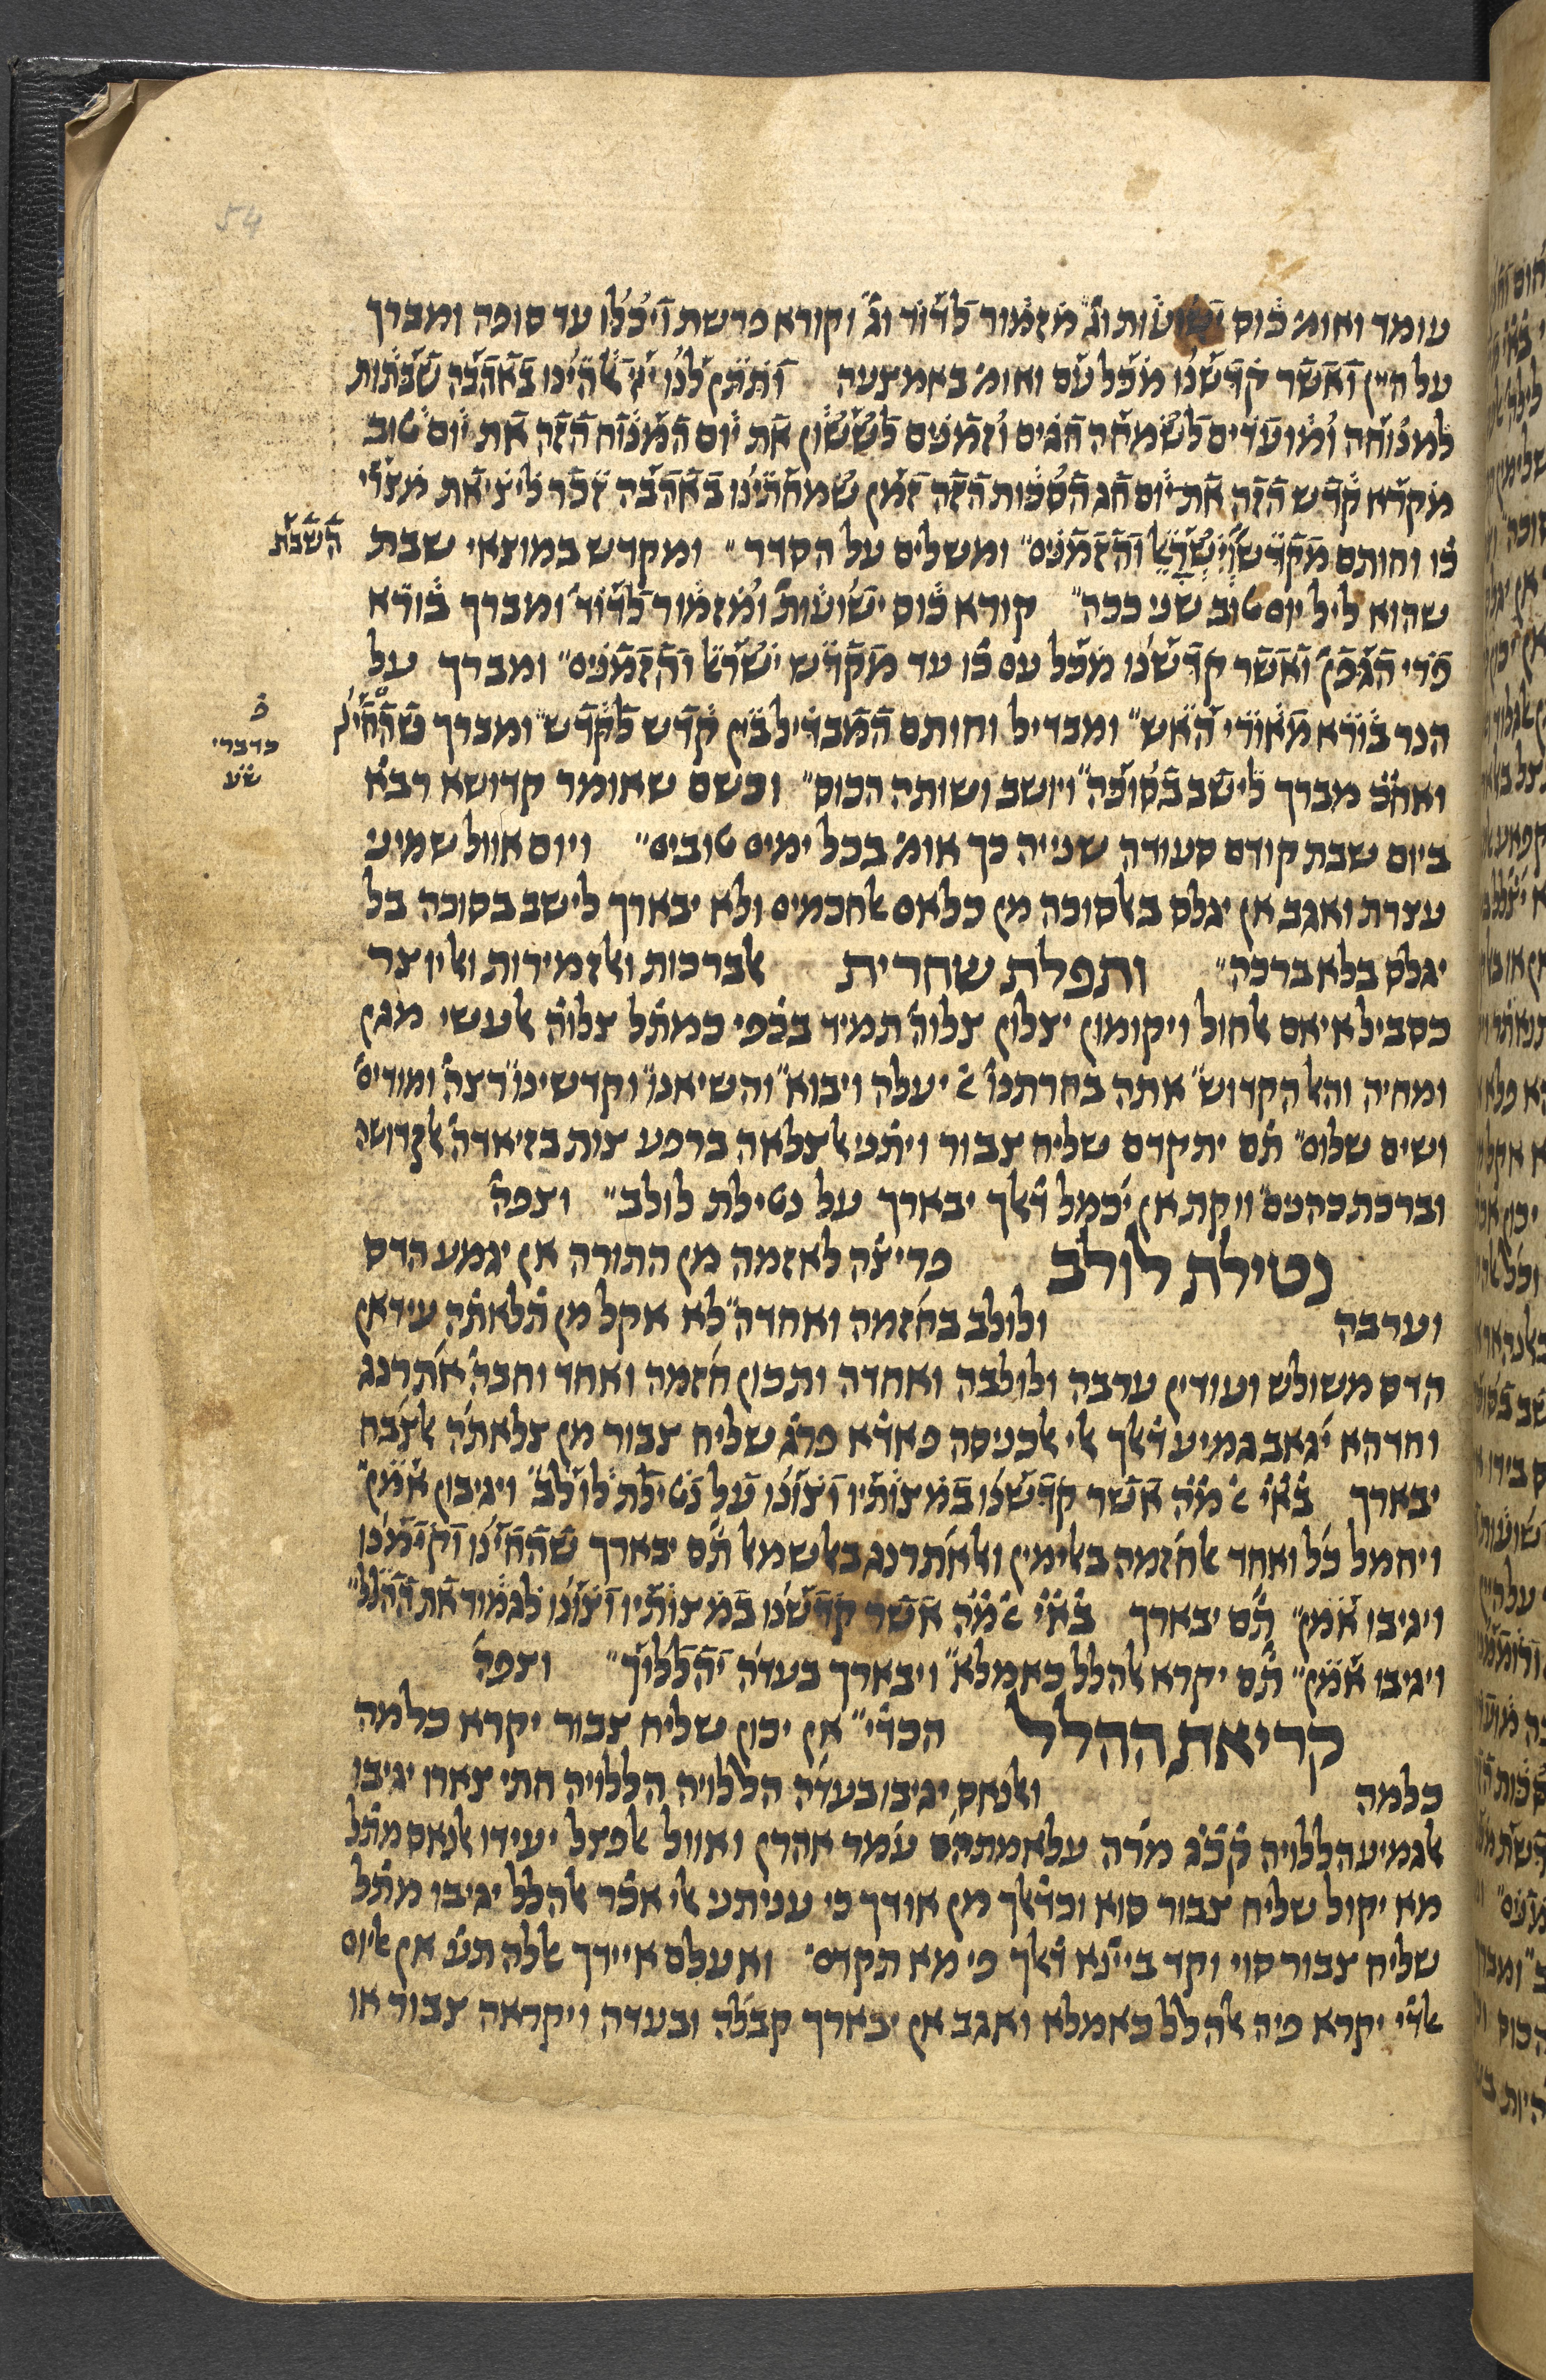 54
עומד ואומ׳ כוס ישועות וג׳ מזמור לדוד וג׳ וקורא פרשת ויכלו עד סופה ומברך
על היין ואשר קדשנו מכל עם ואומ׳ באמצעה ותתן לנו ייי אלהינו באהבה שבתות
למנוחה ומועדים לשמחה חגים וזמנים לששון את יום המנוח הזה את יום טוב
מקרא קדש הזה את יום חג הסכות הזה זמן שמחתינו באהבה זכר ליציאת מצרי׳
כו׳ וחותם מקדש ישראל והזמנים״ ומשלים על הסדר״ ומקדש במוצאי שבת
השבת
שהוא ליל יום טוב שני ככה״ קורא כוס ישועות׳ ומזמור לדוד׳ ומברך בורא
פרי הגפן׳ ואשר קדשנו מכל עם כו׳ עד מקדש ישראל והזמנים״ ומברך על
הנר בורא מאורי האש״ ומבדיל וחותם המבדיל בין קדש לקדש״ ומברך שהחיינ׳
כ׳
כדברי
ש״ע
ואח״כ מברך לישב בסוכה״ ויושב ושותה הכוס״ וכשם שאומר קדושא רבא
ביום שבת קודם סעודה שנייה כך אומ׳ בכל ימים טובים״ ויום אוול שמיני
עצרת ואגב אן יגלס באלסוכה מן כלאם אלחכמים ולא יבארך לישב בסוכה בל
יגלס בלא ברכה״ ותפלת שחרית אלברכות ואלזמירות ואליוצר
כסביל איאם אלחול ויקומון יצלון צלוה׳ תמיד בכפי כמתל צלוה׳ אלעשי מגן
ומחיה והאל הקדוש״ אתה בחרתנו׳ יעלה ויבוא״ והשיאנו״ וקדשינו״ רצה׳ ומודים׳
ושים שלום״ תם יתקדם שליח צבור ויתני אלצלאה ברפע צות בזיאדה׳ אלקדושה
וברכת כהנים״ ווקת אן יכמל דאלך יבארך על נטילת לולב״ וצפה׳
נטילת לולב פריצה לאזמה מן התורה אן יגמע הדס
וערבה ולולב בחזמה ואחדה״ לא אקל מן תלאתה עידאן
הדס משולש ועודין ערבה ולולבה ואחדה ותכון חזמה ואחד וחבה׳ אתרנג
וחדהא יגאב גמיע דאלך אלי אלכניסה פאדא פרג שליח צבור מן צלאתה אלצבח
יבארך בא״י א׳מ׳ה׳ אשר קדשנו במצותיו וצונו על נטילת לולב״ ויגיבון אמן״
ויחמל כל ואחד אלחזמה באלימין ואלאתרנג באלשמאל תם יבארך שהחיינו וקיימנו
ויגיבו אמן״ תם יבארך בא״י א׳מ׳ה׳ אשר קדשנו במצותיו וצונו לגמור את ההלל״
ויגיבו אמן״ תם יקרא אלהלל כאמלא״ ויבארך בעדה יהללוך״ וצפה׳
קריאת ההלל הכדי״ אן יכון שליח צבור יקרא כלמה
כלמה ואלנאס יגיבו בעדה הללויה הללויה חתי צארו יגיבו
אלגמיע הללויה קכ״ג מרה עלאמתהם עמד אהרן ואוול אלפצל יעידו אלנאס מתל
מא יקול שליח צבור סוא וכדאלך מן אודך כי עניתני אלי אכר אלהלל יגיבו מתל
שליח צבור סוי וקד ביינא דאלך פי מא תקדם׳ ואעלם איידך אללה תע׳ אן אליום
אלדי יקרא פיה אלהלל כאמלא ואגב אן יבארך קבלה ובעדה ויקראה צבור או